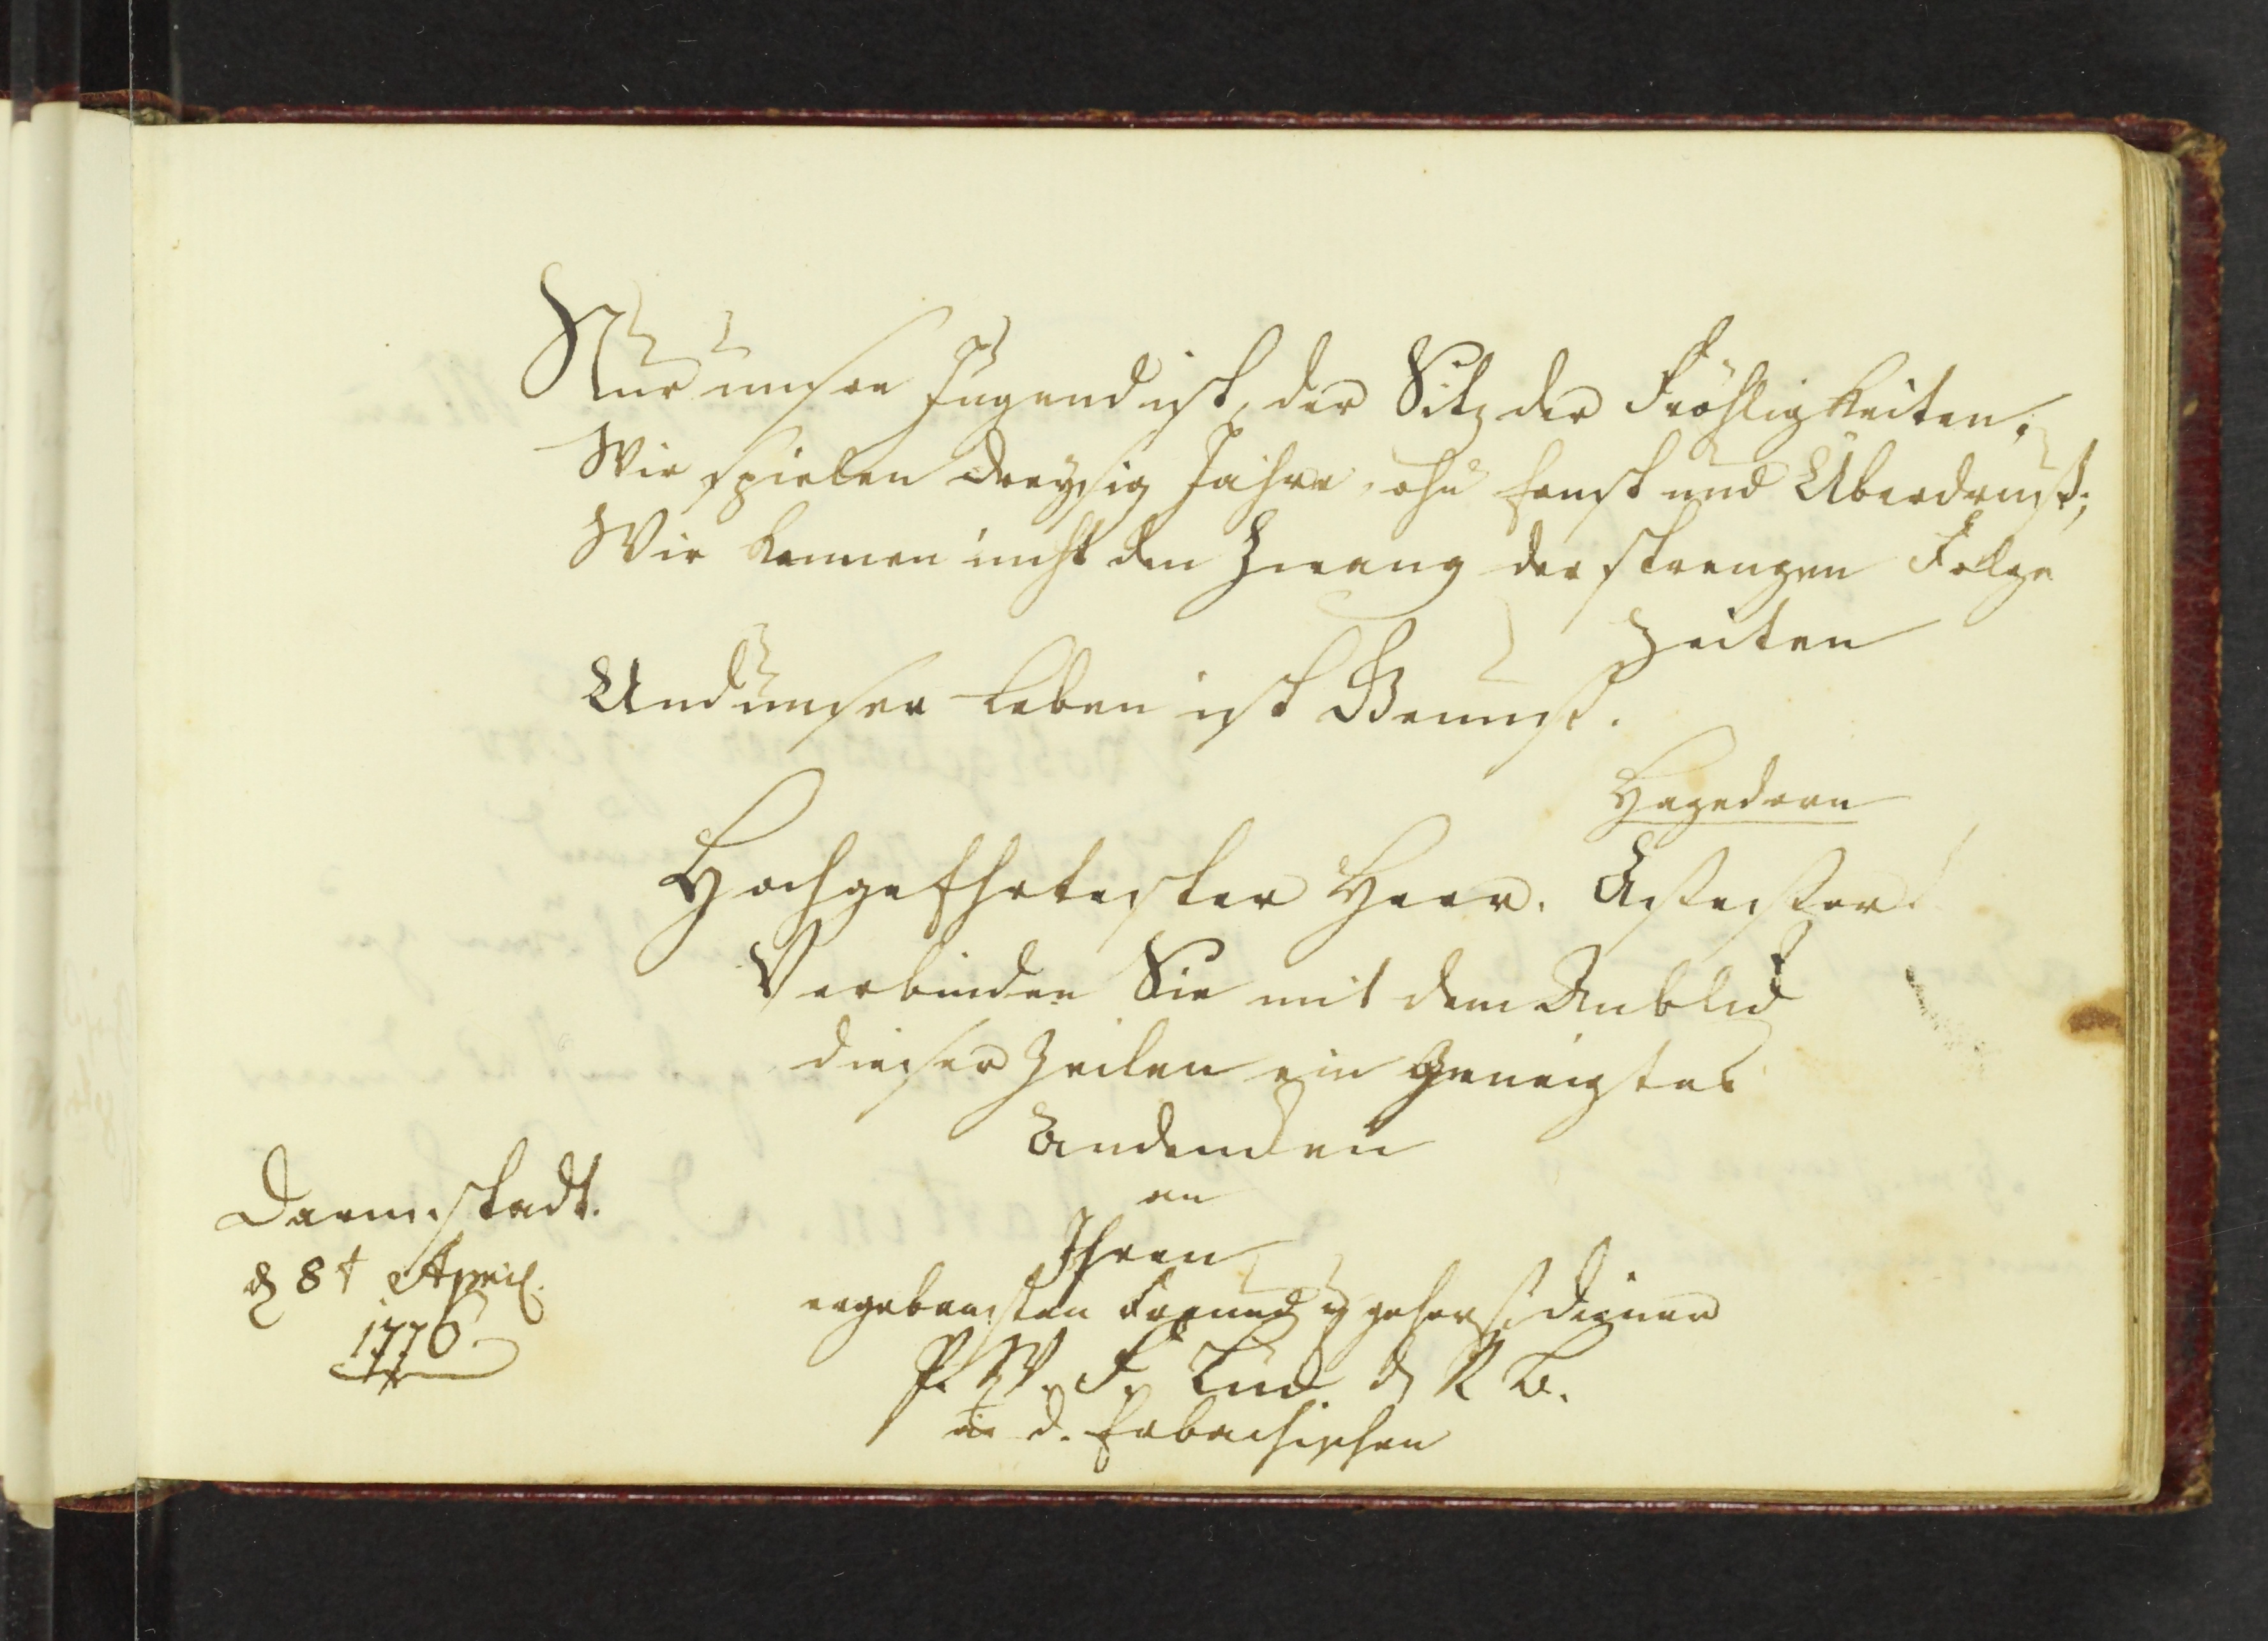 Nur unsre Jugend ist, der Sitz der Fröhligkeiten;
Wir spielen dreyßig Jahre, ohn Ernst und Überdruß;
Wir kennen nicht den Zwang der strengen Folge
Zeiten
Und unser Leben ist Genuß.
Hagedorn
Hochgeehrtester Herr. Assessor!
Verbinden Sie mit dem Anblick
dieser Zeilen ein geneigtes
Andencken
an
Ihren
ergebensten Freund u gehors. Diener
P. W. F. d. R. B.
in d. Erbachischen
Darmstadt.
d 8t April.
1776.